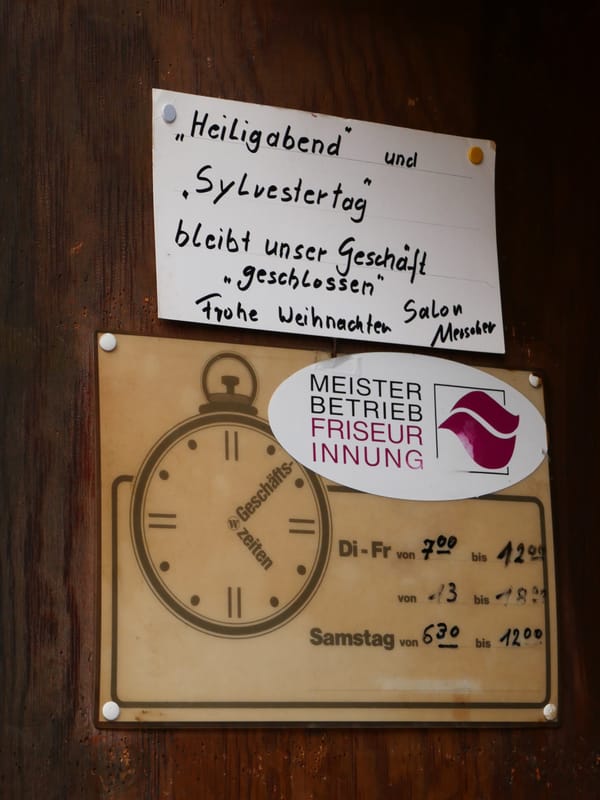 „Heiligabend" und
„Sylvestertag"
bleibt unser Geschäft
„geschlossen"
Frohe Weihnachten Salon
MEISTER
BETRIEB
FRISEUR
INNUNG
Geschäfts-
zeiten
Di - Fr von 7⁰⁰ bis 12⁰⁰
von 13 bis 18⁰⁰
Samstag von 6³⁰ bis 12⁰⁰